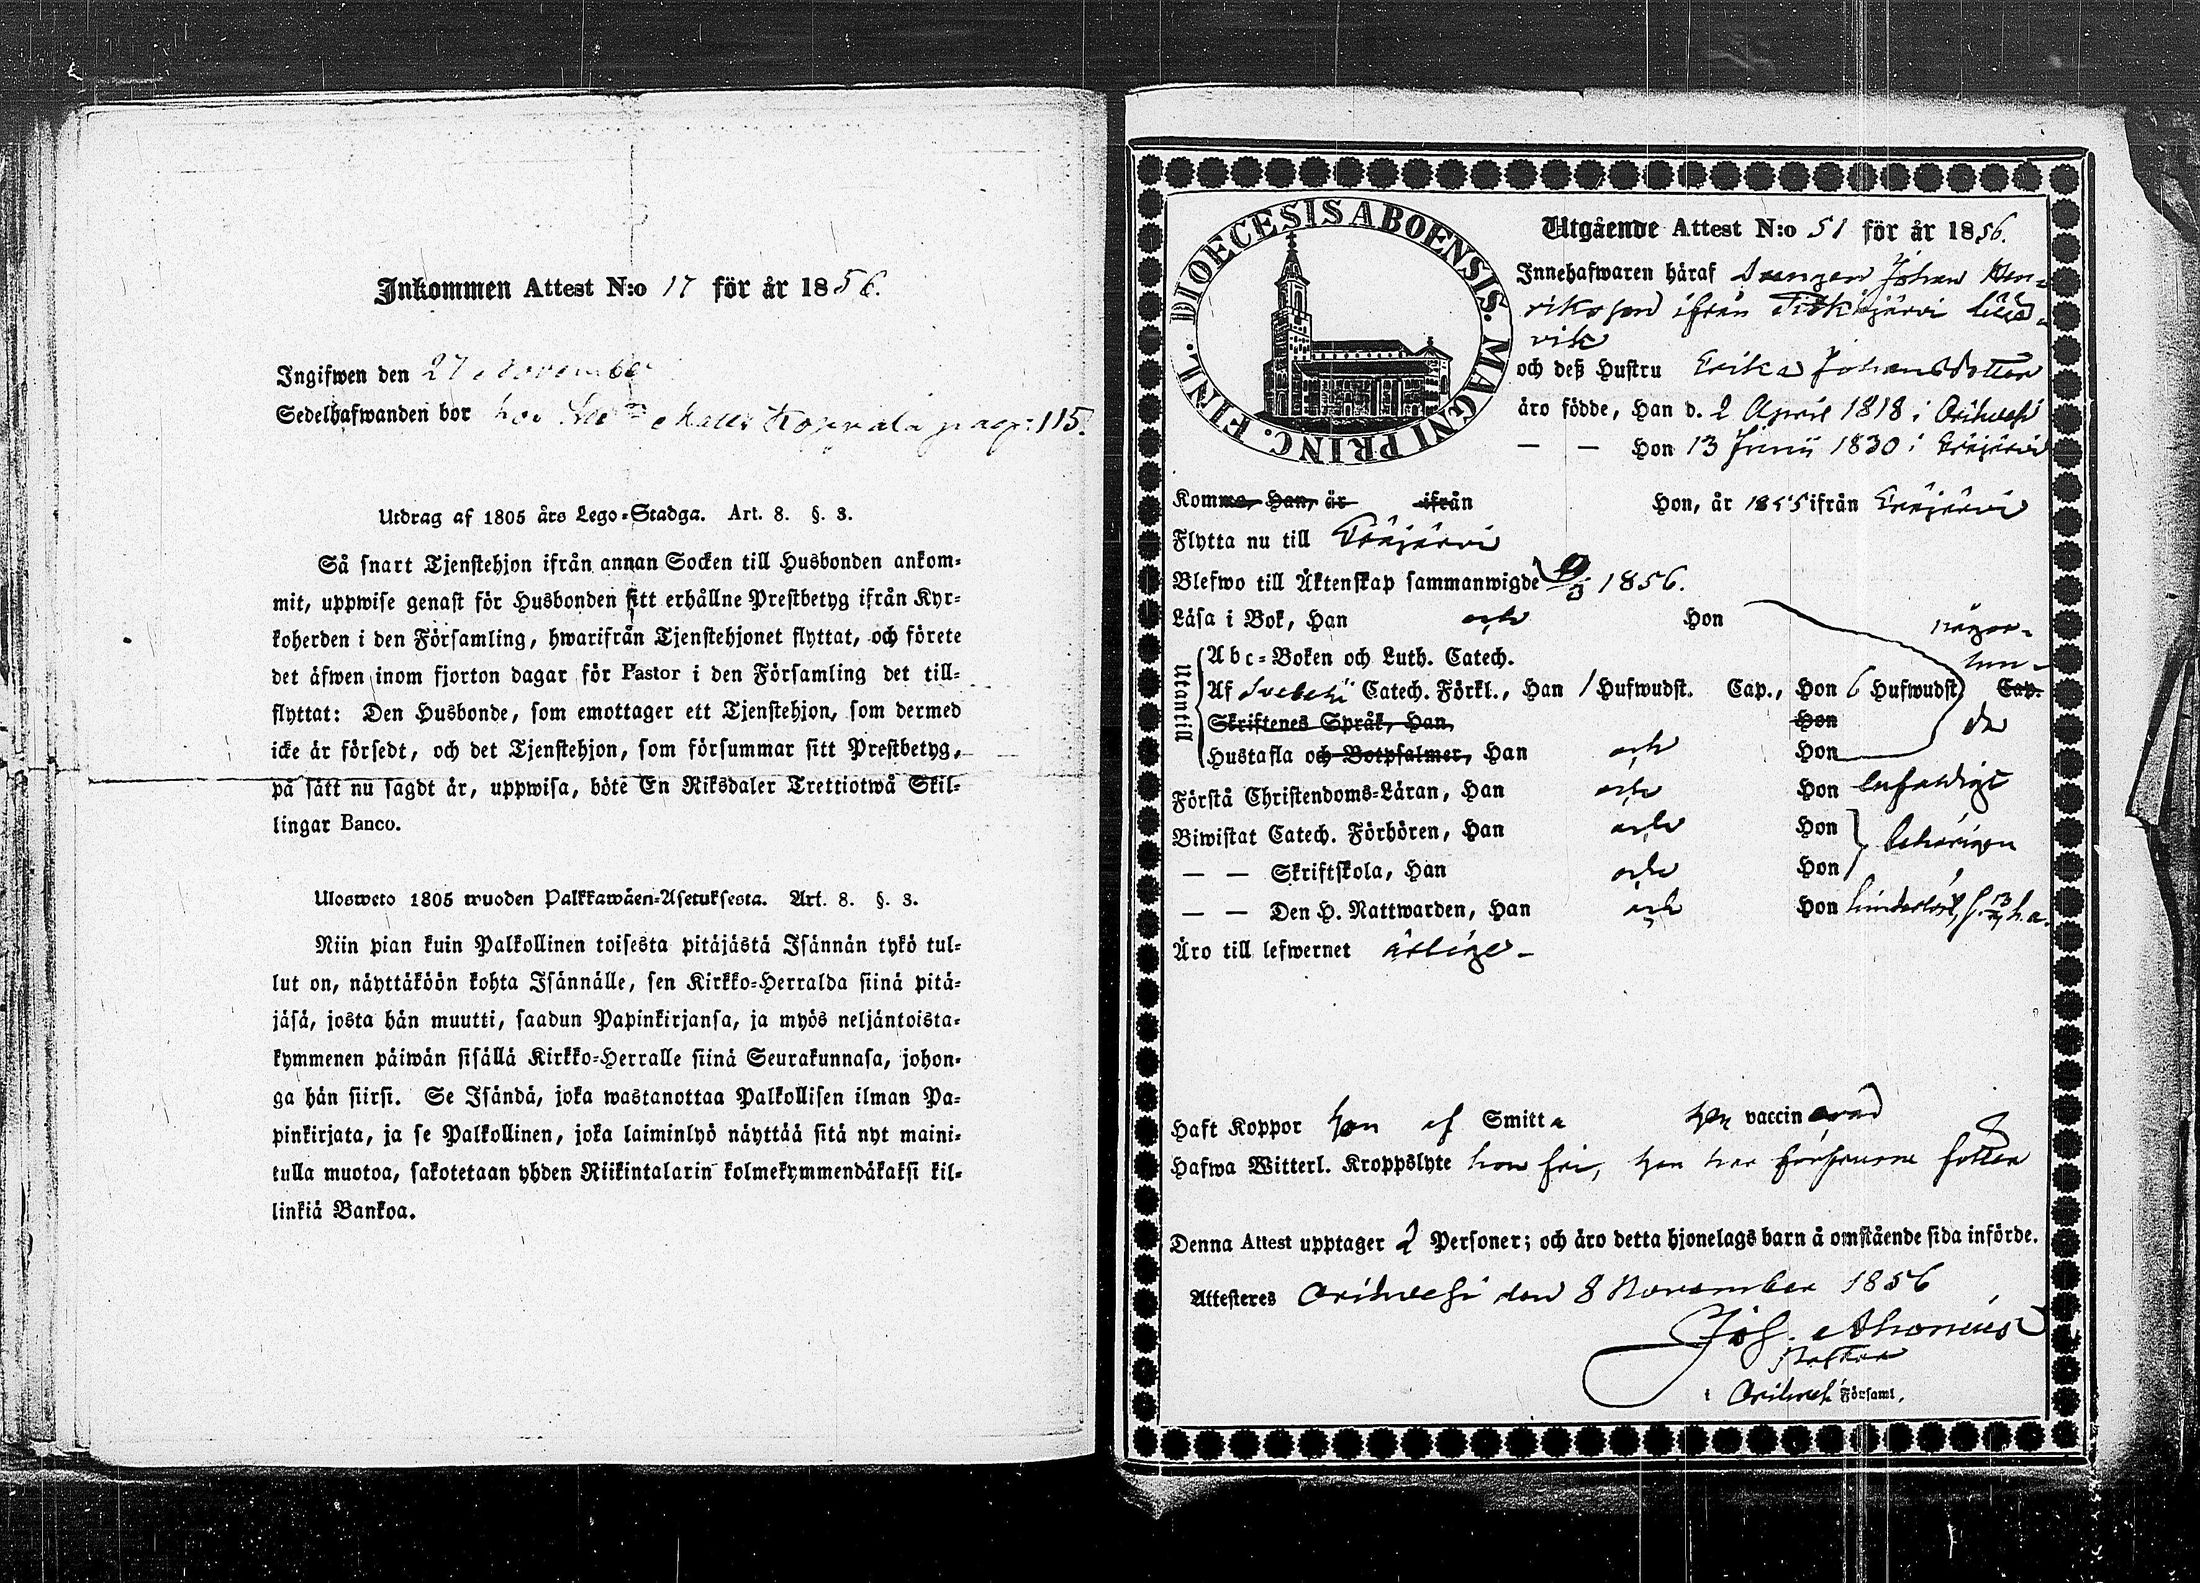 Inkommen Attest N:o 17 för år 1856.
Ingifwen den 27 November
Sedelhafwanden bor hos Matts Koppala pag: 115.
Utdrag af 1805 års Lego-Stadga. Art. 8. §. 3.
Så snart Tjenstehjon ifrån annan Socken till Husbonden ankom-
mit, uppwise genast för Husbonden sitt erhållne Prestbetyg ifrån Kyr-
koherden i den Församling, hwarifrån Tjenstehjonet flyttat, och förete
det äfwen inom fjorton dagar för Pastor i den Församling det till-
flyttat: Den Husbonde, som emottager ett Tjenstehjon, som dermed
icke är försedt, och det Tjenstehjon, som försummar sitt Prestbetyg,
på sätt nu sagdt är, uppwisa, böte En Riksdaler Trettiotwå Skil-
lingar Banco.
Ulosweto 1805 wuoden Palkkawäen-Asetuksesta. Art. 8. §. 3.
Niin pian kuin Palkollinen toisesta pitäjästä Isännän tykö tul-
lut on, näyttäköön kohta Isännälle, sen Kirkko-Herralda siinä pitä-
jäsä, josta hän muutti, saadun Papinkirjansa, ja myös neljäntoista-
kymmenen päiwän sisällä Kirkko-Herralle siinä Seurakunnasa, johon-
ga hän siirsi. Se Isändä, joka wastanottaa Palkollisen ilman Pa-
pinkirjata, ja se Palkollinen, joka laiminlyö näyttää sitä nyt maini-
tulla muotoa, sakotetaan yhden Riikintalarin kolmekymmendäkaksi kil-
linkiä Bankoa.
DIOECESIS ABOENSIS. MAGNI PRINC. FINL.
Utgående Attest N:o 51 för år 1856.
Innehafwaren häraf Drengen Johan Hen-
riksson ifrån
och deß Hustru Erika Johansdotter
äro födde, Han d. 2 April 1818 i Orihvesi
— — Hon 13 Junii 1830 i Eräjärvi
Komma, Han, år ifrån Hon, år 1855 ifrån Eräjärvi
Flytta nu till Eräjärvi
Blefwo till Äktenskap sammanwigde 9/3 1856.
Läsa i Bok, Han och Hon någor-
lun-
Utantill
Abc-Boken och Luth. Catech.
Af Svebelii Catech. Förkl., Han 1 Hufwudst. Cap., Hon 6 Hufwudst. Cap.
Skriftenes Språk, Han, Hon da
Hustafla och Botpsalmer, Han och Hon
Förstå Christendoms-Läran, Han och Hon enfaldigt
Biwistat Catech. Förhören, Han och Hon behörigen
— — Skriftskola, Han och Hon
— — Den H. Nattwarden, Han och Hon hinderlöst,
Äro till lefwernet ärlige
Haft Koppor hon af Smitta han vaccinerad
Hafwa Witterl. Kroppslyte hon fri, han har förfrusne fötter
Denna Attest upptager 2 Personer; och äro detta hjonelags barn å omstående sida införde.
Attesteres Orihvesi den 8 November 1856
Joh. Ahonius
Pastor
i Orihvesi Församl.